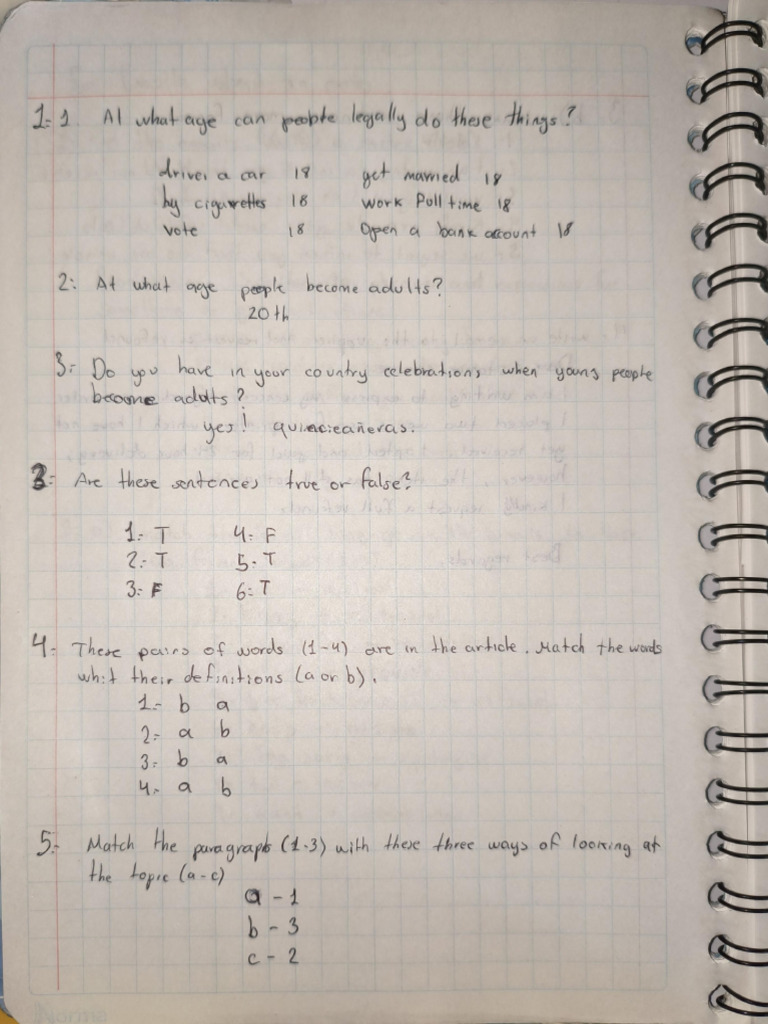 1.- 1. At what age can people legally do these things?
drivei a car 18 get married 18
by cigarettes 18 work Pull time 18
vote 18 Open a bank account 18
2: At what age people become adults?
20th
3: Do you have in your country celebrations when young people
become adults?
yes! quinceañeras.
3: Are these sentences true or false?
1: T 4: F
2: T 5: T
3: F 6: T
4: These pairs of words (1-4) are in the article. Match the words
whit their definitions (a or b).
1.- b a
2.- a b
3.- b a
4.- a b
5.- Match the paragraph (1-3) with these three ways of looking at
the topic (a-c)
a - 1
b - 3
c - 2
Norma